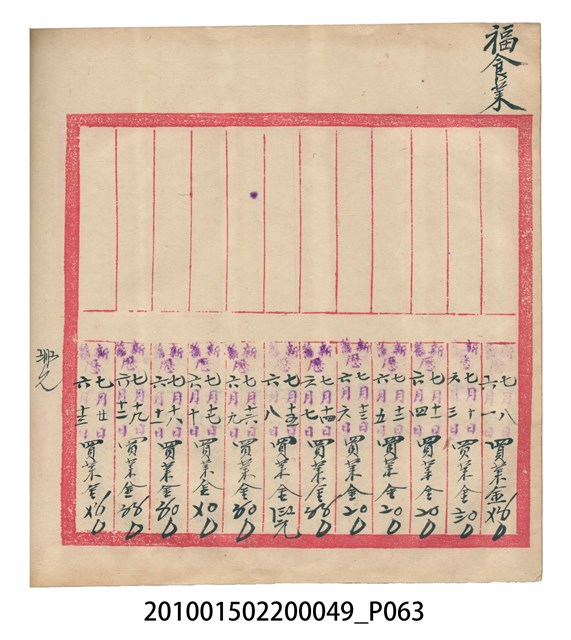 福食菜
新曆七月八日
舊曆六月一日
買菜金
新曆七月十日
舊曆六月三日
買菜金
新曆七月十一日
舊曆六月四日
買菜金20
新曆七月十二日
舊曆六月五日
買菜金20
新曆七月十三日
舊曆六月六日
買菜金20
新曆七月十四日
舊曆六月七日
買菜金
新曆七月十五日
舊曆六月八日
買菜金
新曆七月十六日
舊曆六月九日
買菜金
新曆七月十七日
舊曆六月十日
買菜金
新曆七月十八日
舊曆六月十一日
買菜金
新曆七月十九日
舊曆六月十二日
買菜金
新曆七月廿日
舊曆六月十三日
買菜金
201001502200049_P063